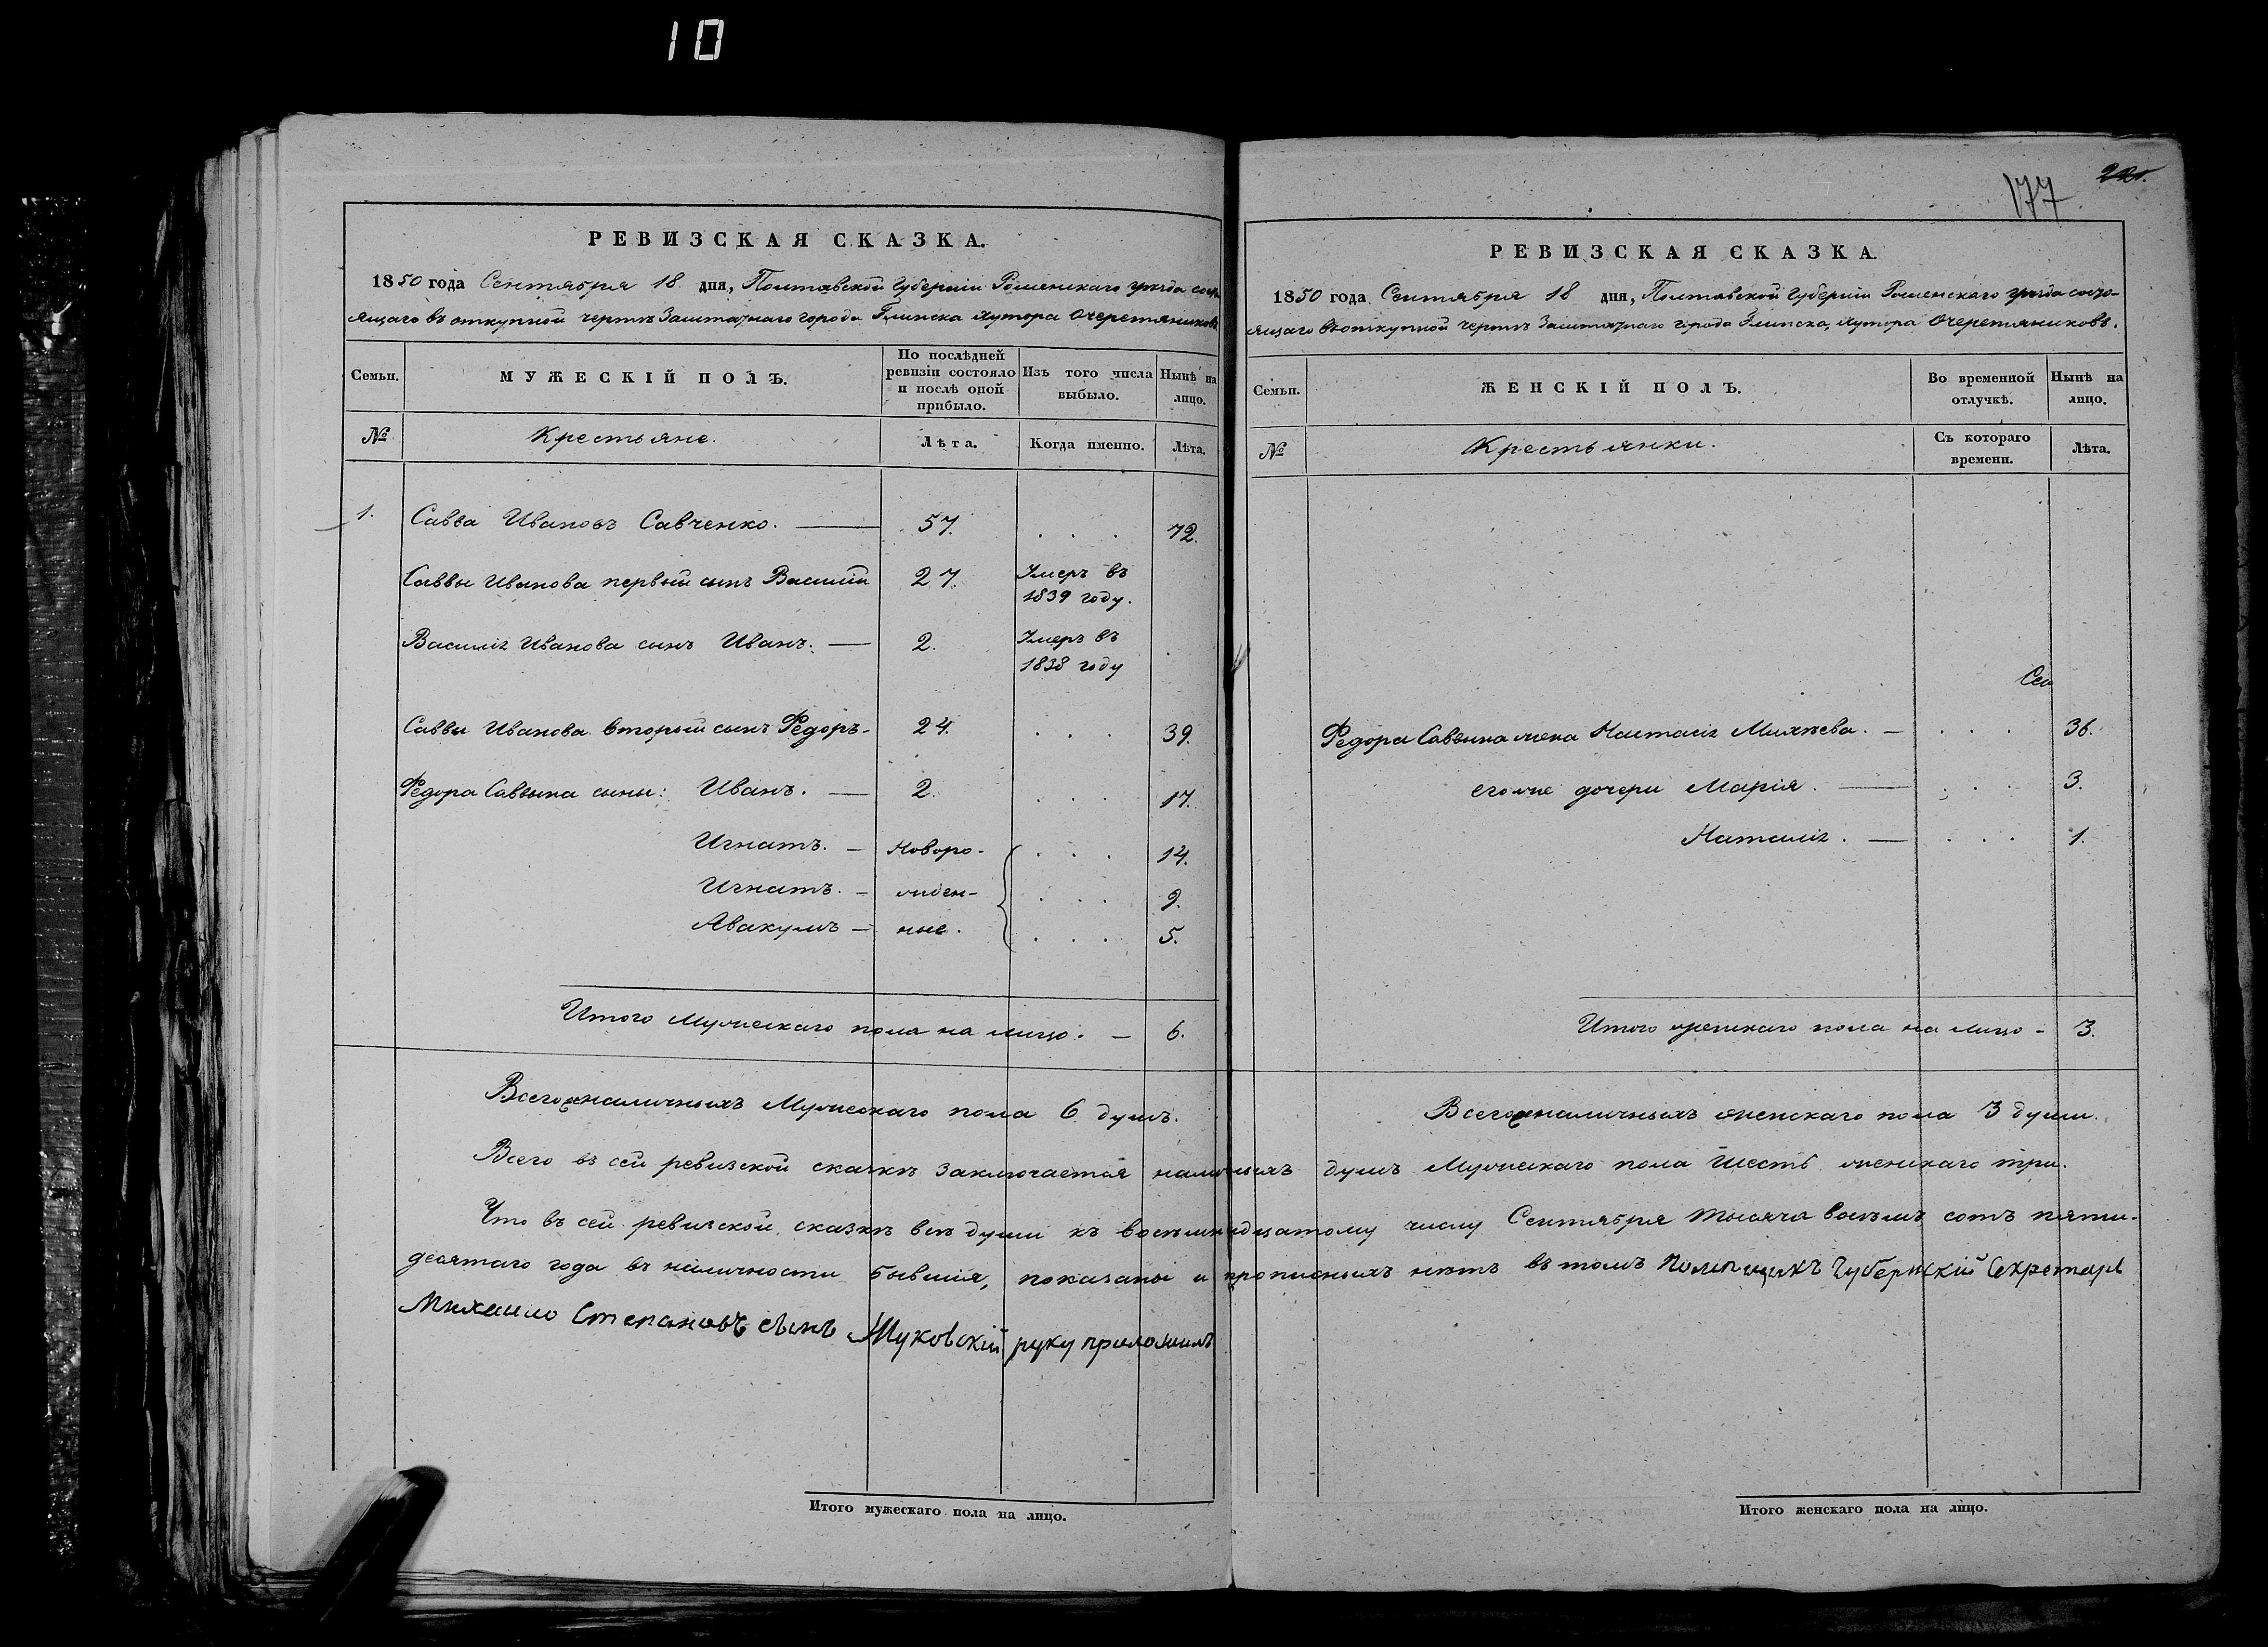 10
РЕВИЗСКАЯ СКАЗКА.
1850 года Сентября 18 дня, Полтавской Губерніи Роменскаго уѣзда состо
ящаго въ откупной чертѣ Заштатнаго города Глинска хутора Очеретяниковъ
Семьи.
МУЖЕСКІЙ ПОЛЪ.
По послѣдней ревизіи состояло и послѣ оной прибыло.
Изъ того числа выбыло.
Нынѣ на лицо.
№
Крестьяне.
Лѣта.
Когда именно.
Лѣта.
1. Савва Ивановъ Савченко. — 57. . . . 72.
Саввы Иванова первый сынъ Василій 27. Умеръ въ
1839 году.
Василія Иванова сынъ Иванъ. — 2. Умеръ въ
1838 году
Саввы Иванова второй сынъ Ѳедоръ - 24. . . . 39.
Ѳедора Саввина сыны: Иванъ. — 2. . . . 17.
Игнатъ. — новоро- . . . 14.
Игнатъ. — жден- . . . 9.
Авакумъ — ные. . . . 5.
Итого Мужескаго пола на лицо. — 6.
Всего наличныхъ Мужескаго пола 6 душъ.
Всего въ сей ревизской сказкѣ заключается наличныхъ душъ Мужескаго пола шесть женскаго три.
Что въ сей ревизской сказкѣ всѣ души къ восемнадцатому числу Сентября тысяча восемь сотъ пяти-
десятаго года въ наличности бывшія, показаны и прописныхъ нѣтъ въ томъ Помѣщикъ Губернскій Секретарь
Михаило Степановъ сынъ Жуковскій руку приложилъ
Итого мужескаго пола на лицо.
177
РЕВИЗСКАЯ СКАЗКА.
1850 года Сентября 18 дня, Полтавской Губерніи Роменскаго уѣзда состо-
ящаго въ откупной чертѣ Заштатнаго города Глинска, хутора Очеретяниковъ.
Семьи.
ЖЕНСКІЙ ПОЛЪ.
Во временной отлучкѣ.
Нынѣ на лицо.
№
Крестьянки.
Съ котораго времени.
Лѣта.
Ѳедора Саввина жена Настасія Михѣева. — . . . 36.
его же дочери Марія. — . . . 3.
Наталія. — . . . 1.
Итого женскаго пола на лицо - 3.
Всего наличныхъ женскаго пола 3 души.
Итого женскаго пола на лицо.